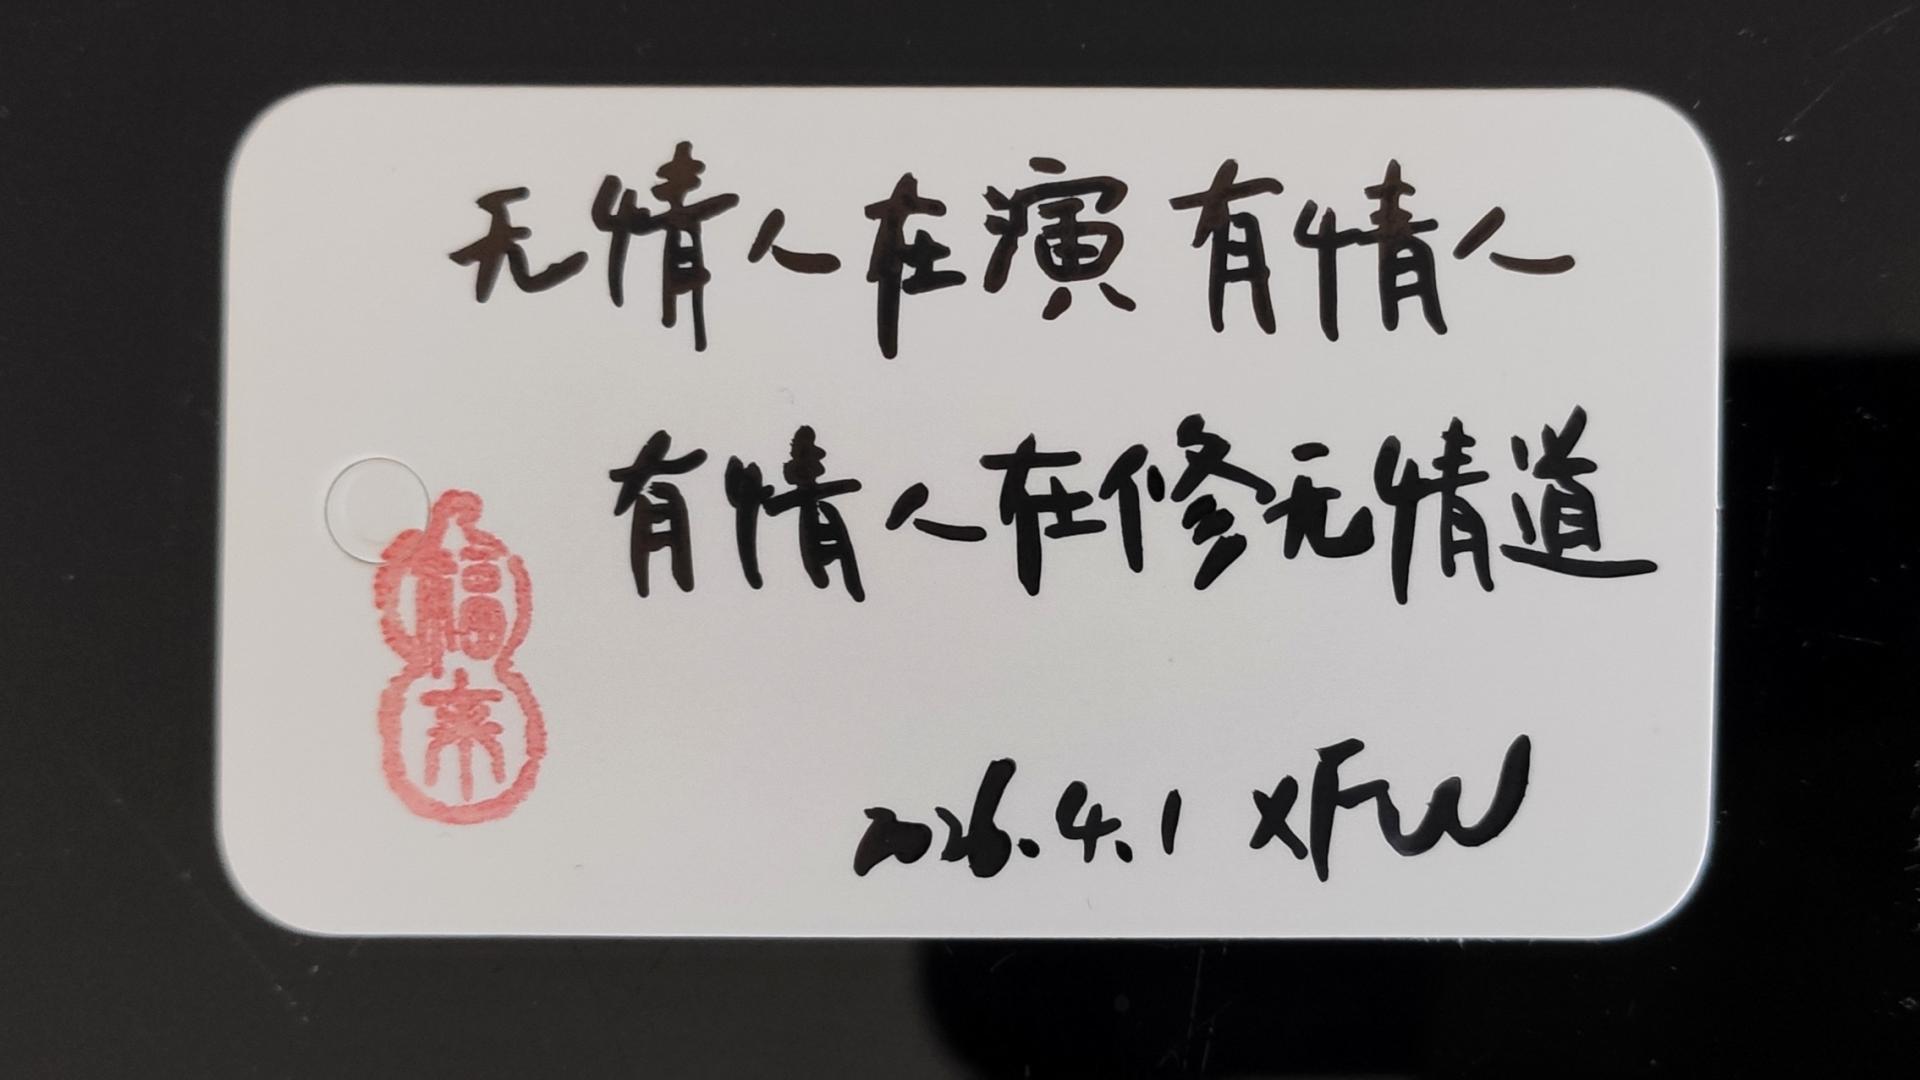 无情人在演有情人
有情人在修无情道
福
来
2026.4.1 XFW